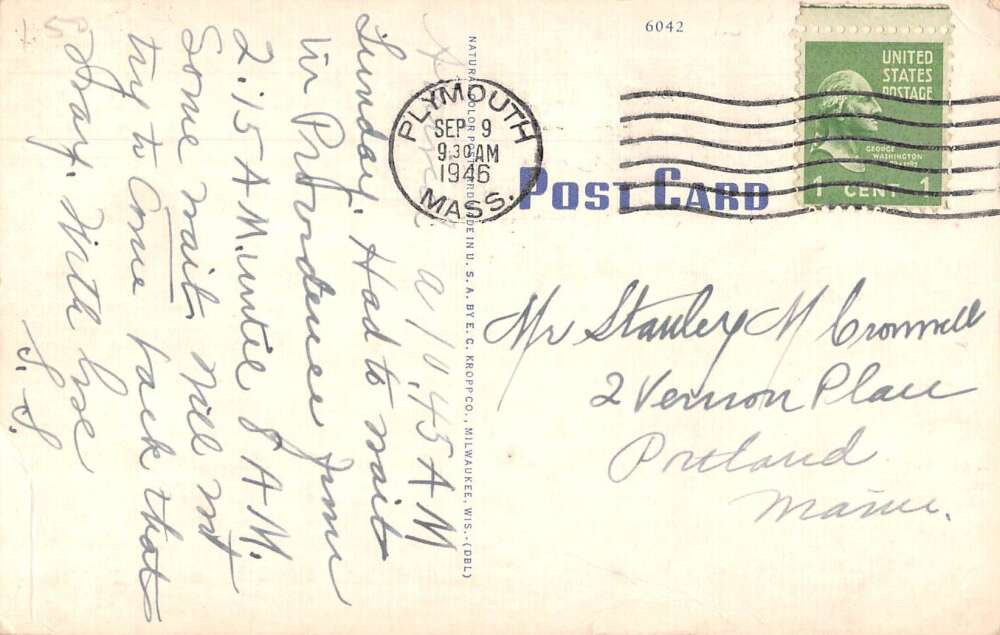 6042
UNITED
STATES
POSTAGE
GEORGE
WASHINGTON
1 CENT 1
PLYMOUTH
SEP 9
9 30 AM
1946
MASS.
POST CARD
NATURAL COLOR POST CARD MADE IN U. S. A. BY E. C. KROPP CO., MILWAUKEE, WIS.-(DBL)
Mr Stanley M Cromwell
2 Vernon Place
Portland
Maine.
a 10.45 A M
Sunday. Had to wait
in Providence from
2.15 A M. untie 8 A M.
Some wait. Will not
try to Come back that
way. With love